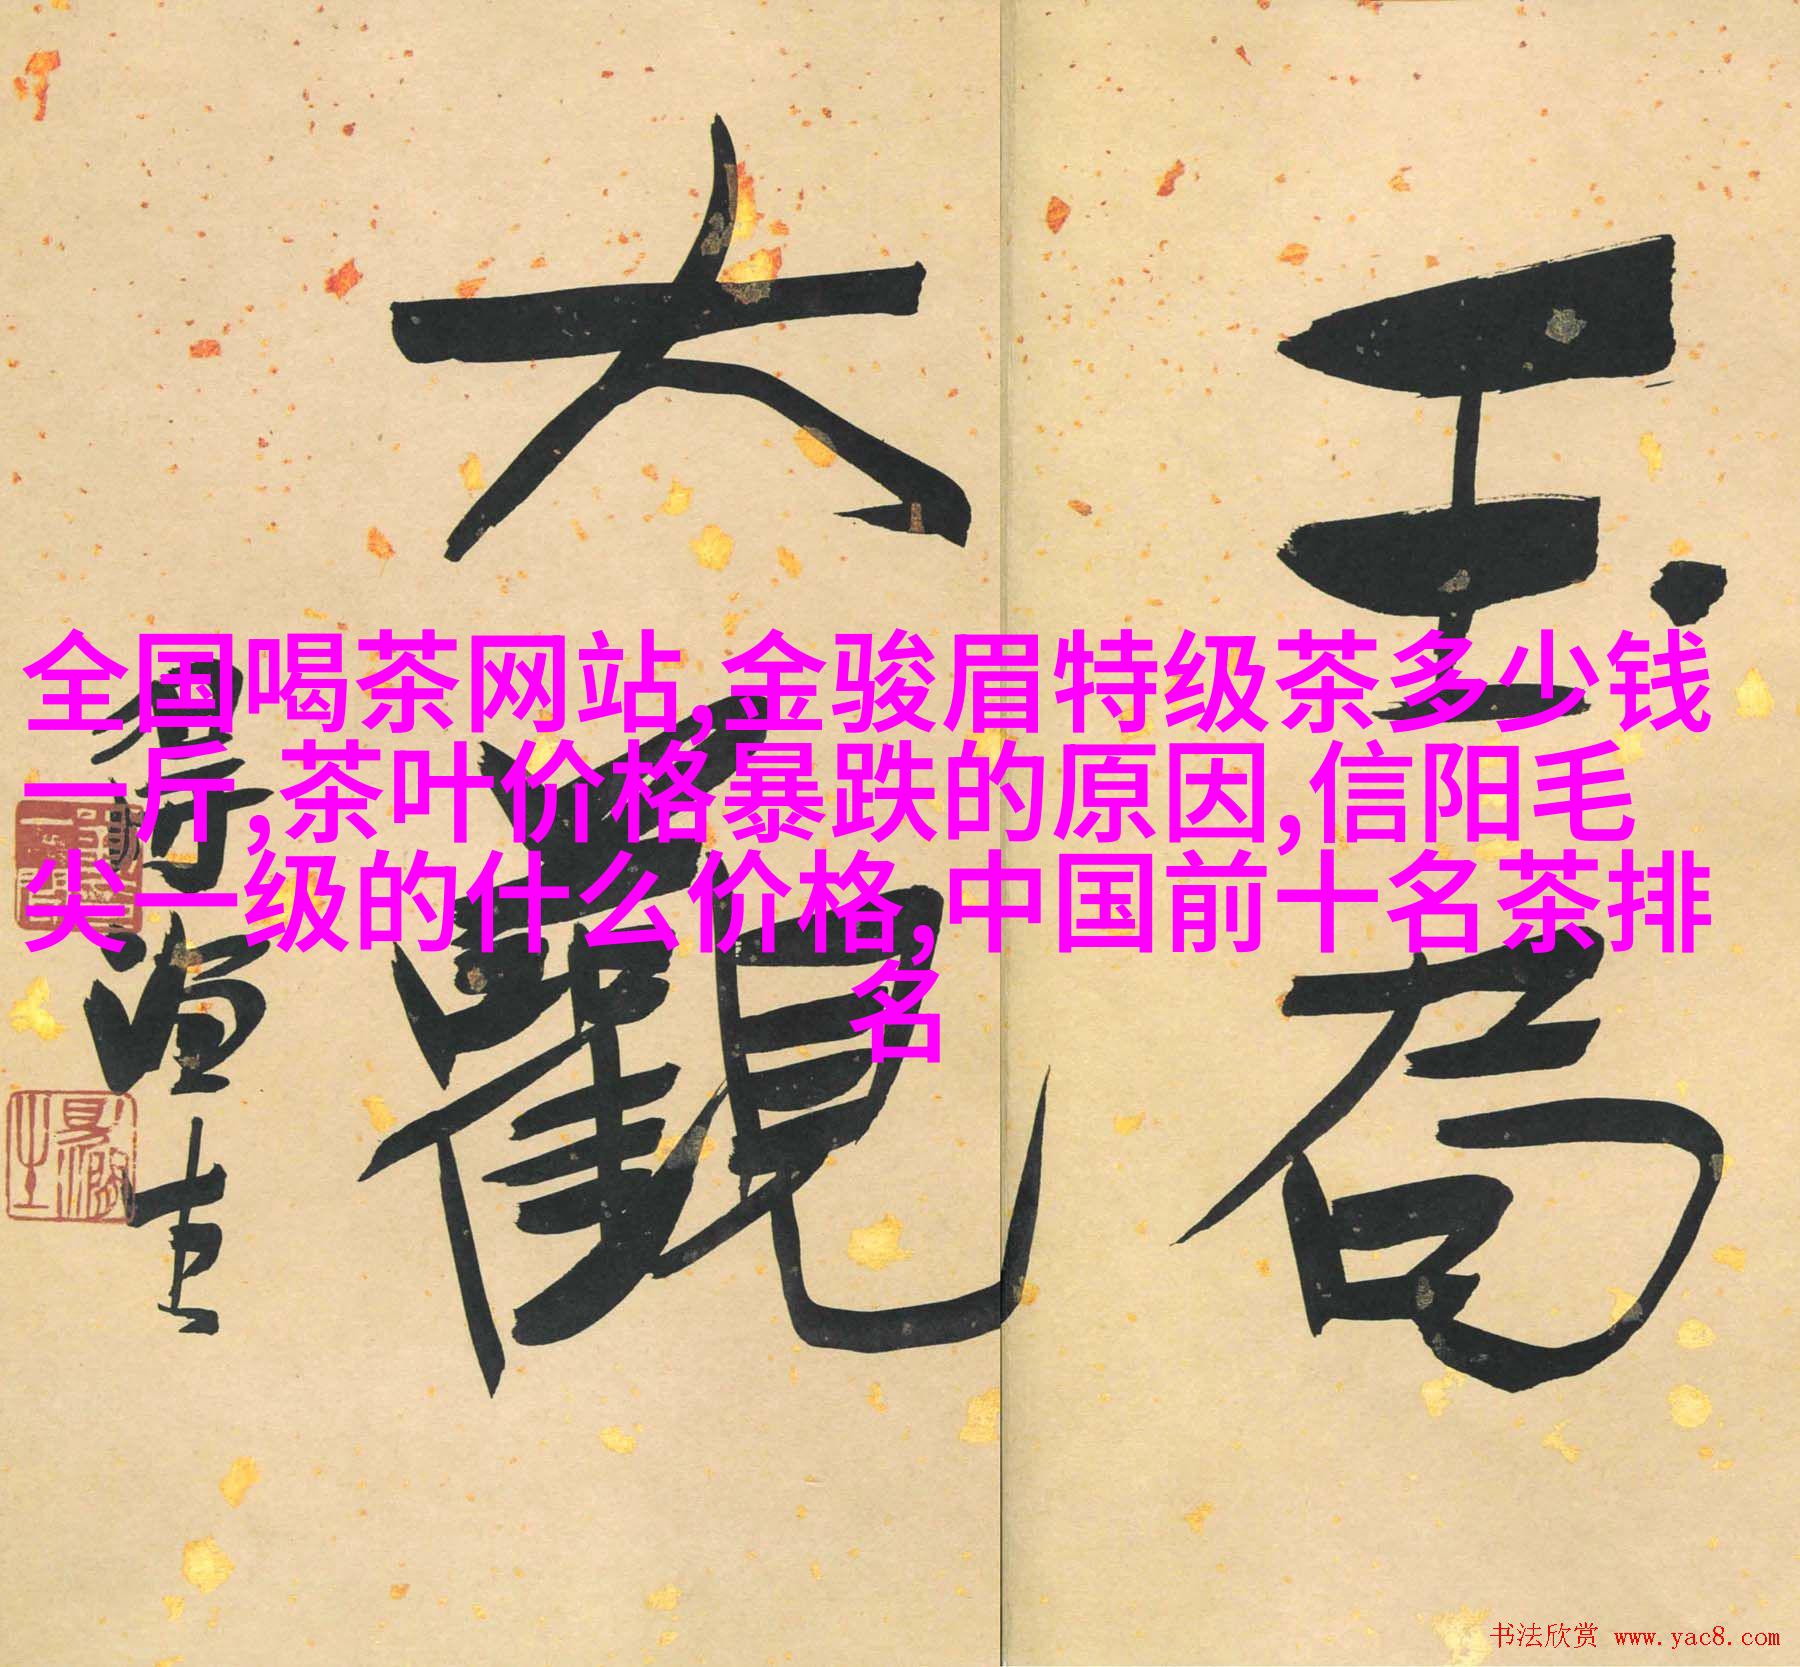 玉局
大觀
全国喝茶网站,金骏眉特级茶多少钱
一斤,茶叶价格暴跌的原因,信阳毛
尖一级的什么价格,中国前十名茶排
名
书法欣赏 www.yac8.com